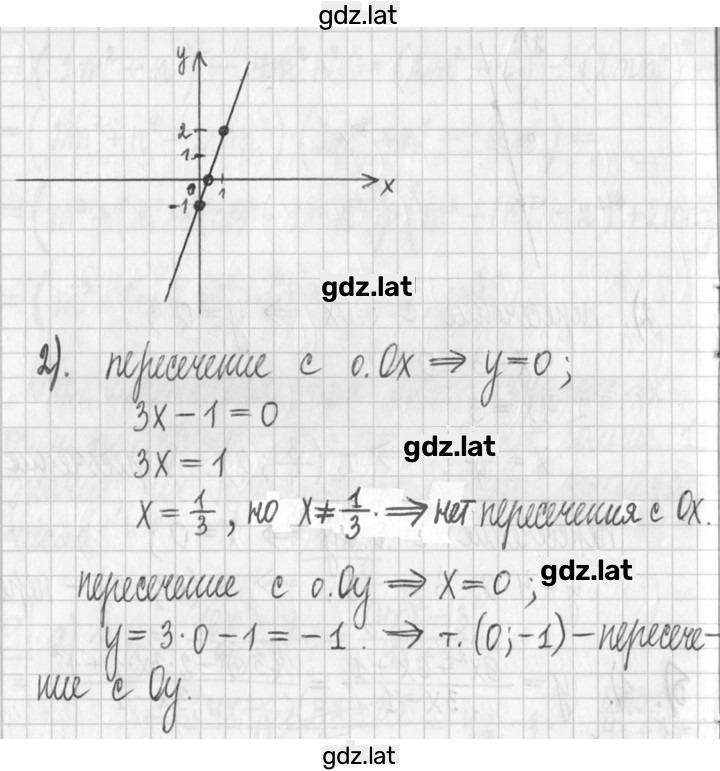 gdz.lat
y
2
1
0 1 x
-1
gdz.lat
2). пересечение с о.Ox ⇒ y=0;
3x-1=0
gdz.lat
3x=1
x=1/3, но x≠1/3. ⇒ нет пересечения с Ox.
gdz.lat
пересечение с о.Oy ⇒ x=0;
y=3·0-1=-1. ⇒ т.(0;-1)-пересече-
ние с Oy.
gdz.lat